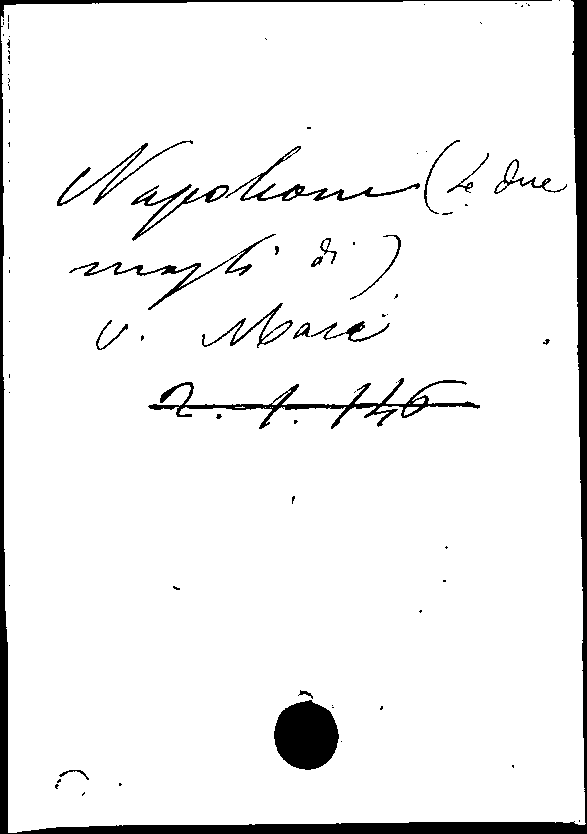 Napoleone (Le due
mogli di)
v. Macè
2. 1. 146